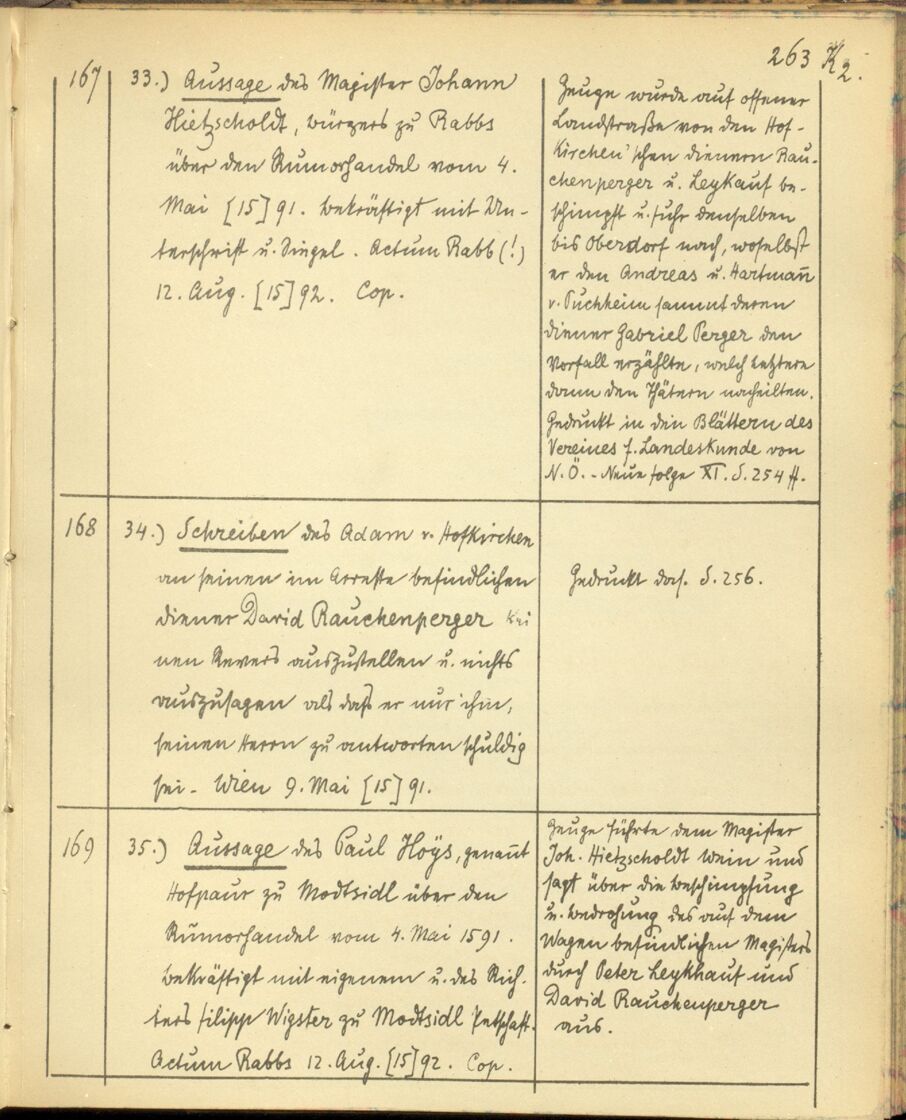 263 K2.
167
33.) Aussage des Magister Johann
Hietzscholdt, bürgers zu Rabbs
über den Rumorhandel vom 4.
Mai [15]91. bekräftigt mit Un-
terschrift u. Singel. Actum Rabb (!)
12. Aug. [15]92. Cop.
Zeuge wurde auf offener
Landstraße von den Hof-
kirchen'schen dienern Rau-
chenperger u. Leykauf be-
schimpft u. fuhr denselben
bis Oberdorf nach, woselbst
er den Andreas u. Hartmañ
v. Puchheim sammt deren
diener Gabriel Perger den
Vorfall erzählte, welch letztere
dann den Thätern nacheilten.
Gedruckt in den Blättern des
Vereines f. Landeskunde von
N. Ö. - Neue folge XI. S. 254 ff.
168
34.) Schreiben des Adam v. Hofkirchen
an seinen im Arreste befindlichen
diener David Rauchenperger kei
nen Revers auszustellen u. nichts
auszusagen als daß er nur ihm,
seinen Herrn zu antworten schuldig
sei - Wien 9. Mai [15]91.
Gedruckt das. S. 256.
169
35.) Aussage des Paul Höys, genañt
Hofpaur zu Modtsidl über den
Rumorhandel vom 4. Mai 1591.
bekräftigt mit eigenem u. des Rich-
ters filipp Wigster zu Modtsidl Petschaft.
Actum Rabbs 12. Aug. [15]92. Cop.
Zeuge führte dem Magister
Joh. Hietzscholdt Wein und
sagt über die beschimpfung
u. bedrohung des auf dem
Wagen befindlichen Magisters
durch Peter Leykhauf und
David Rauchenperger
aus.